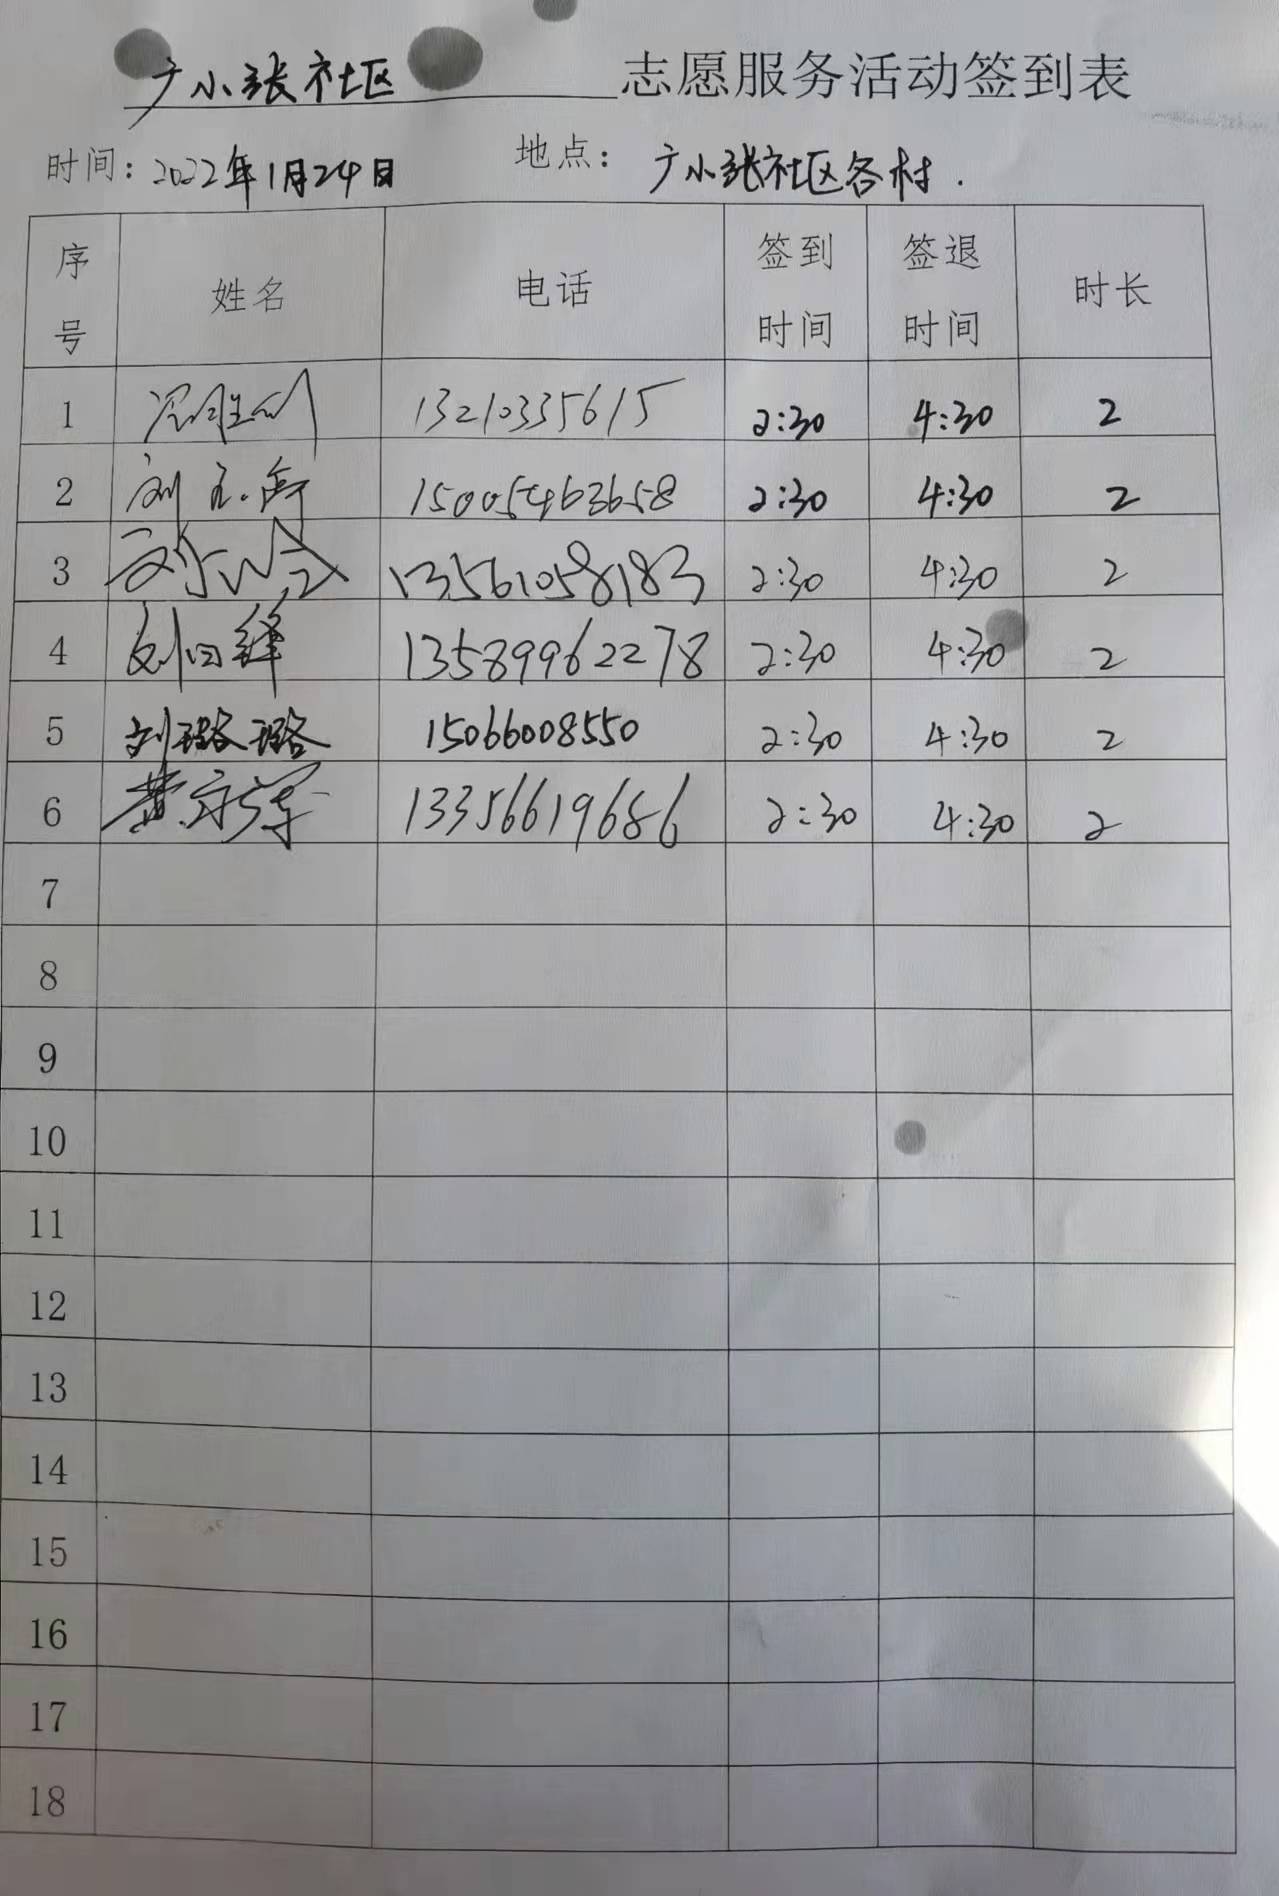 广小张社区 志愿服务活动签到表
时间：2022年1月24日 地点：广小张社区各村.
序号 姓名 电话 签到时间 签退时间 时长
1 13210335615 2:30 4:30 2
2 刘 15005463658 2:30 4:30 2
3 刘 13561058183 2:30 4:30 2
4 刘 13589962278 2:30 4:30 2
5 刘璐璐 15066008550 2:30 4:30 2
6 黄 13356619686 2:30 4:30 2
7
8
9
10
11
12
13
14
15
16
17
18